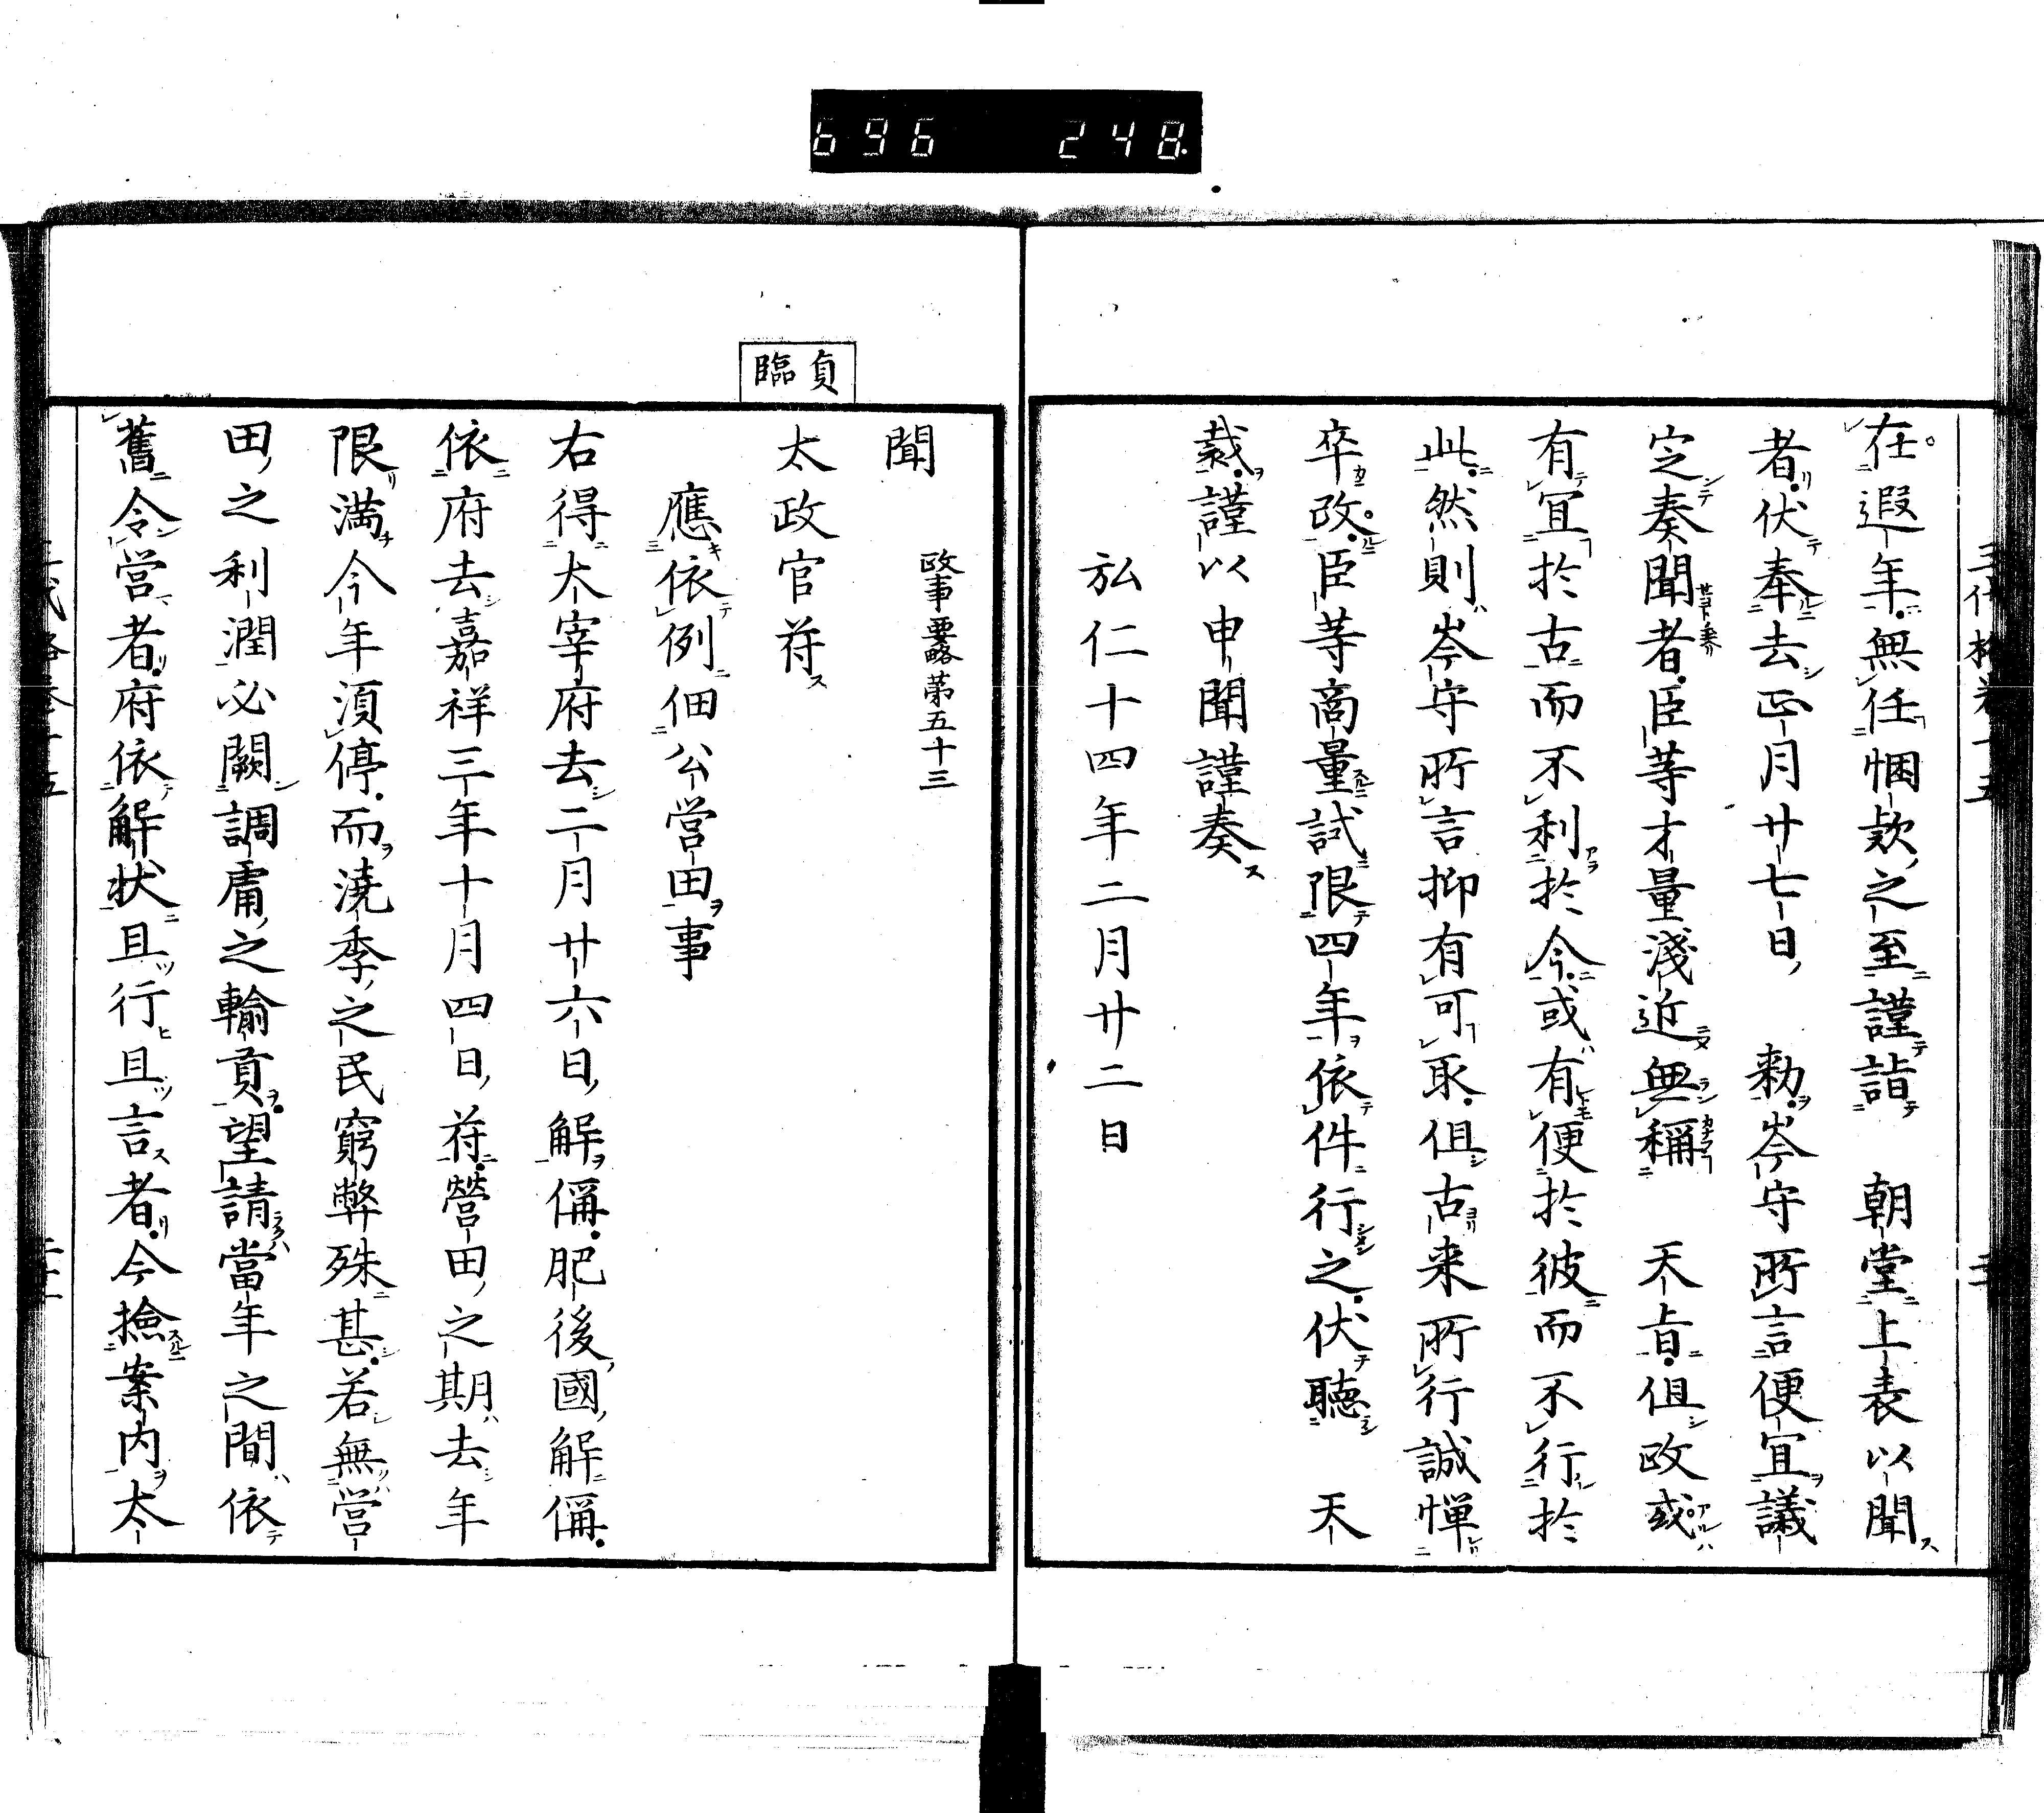 696 248
在遐年無任悃款之至謹詣 朝堂上表以聞
者伏奉去正月廿七日 勅岑守所言便宜議
定奏聞者臣等才量淺近無稱 天旨但政或
有宜於古而不利於今或有便於彼而不行於
此然則岑守所言抑有可取但古来所行誠憚
卒改臣等商量試限四年依件行之伏聽 天
裁謹以申聞謹奏
弘仁十四年二月廿二日
聞
政事要略第五十三
貞臨
太政官符
應依例佃公営田事
右得太宰府去二月廿六日解偁肥後國解偁
依府去嘉祥三年十月四日符營田之期去年
限満今年須停而澆季之民窮弊殊甚若無営
田之利潤必闕調庸之輸貢望請當年之間依
舊令営者府依解状且行且言者今撿案内太